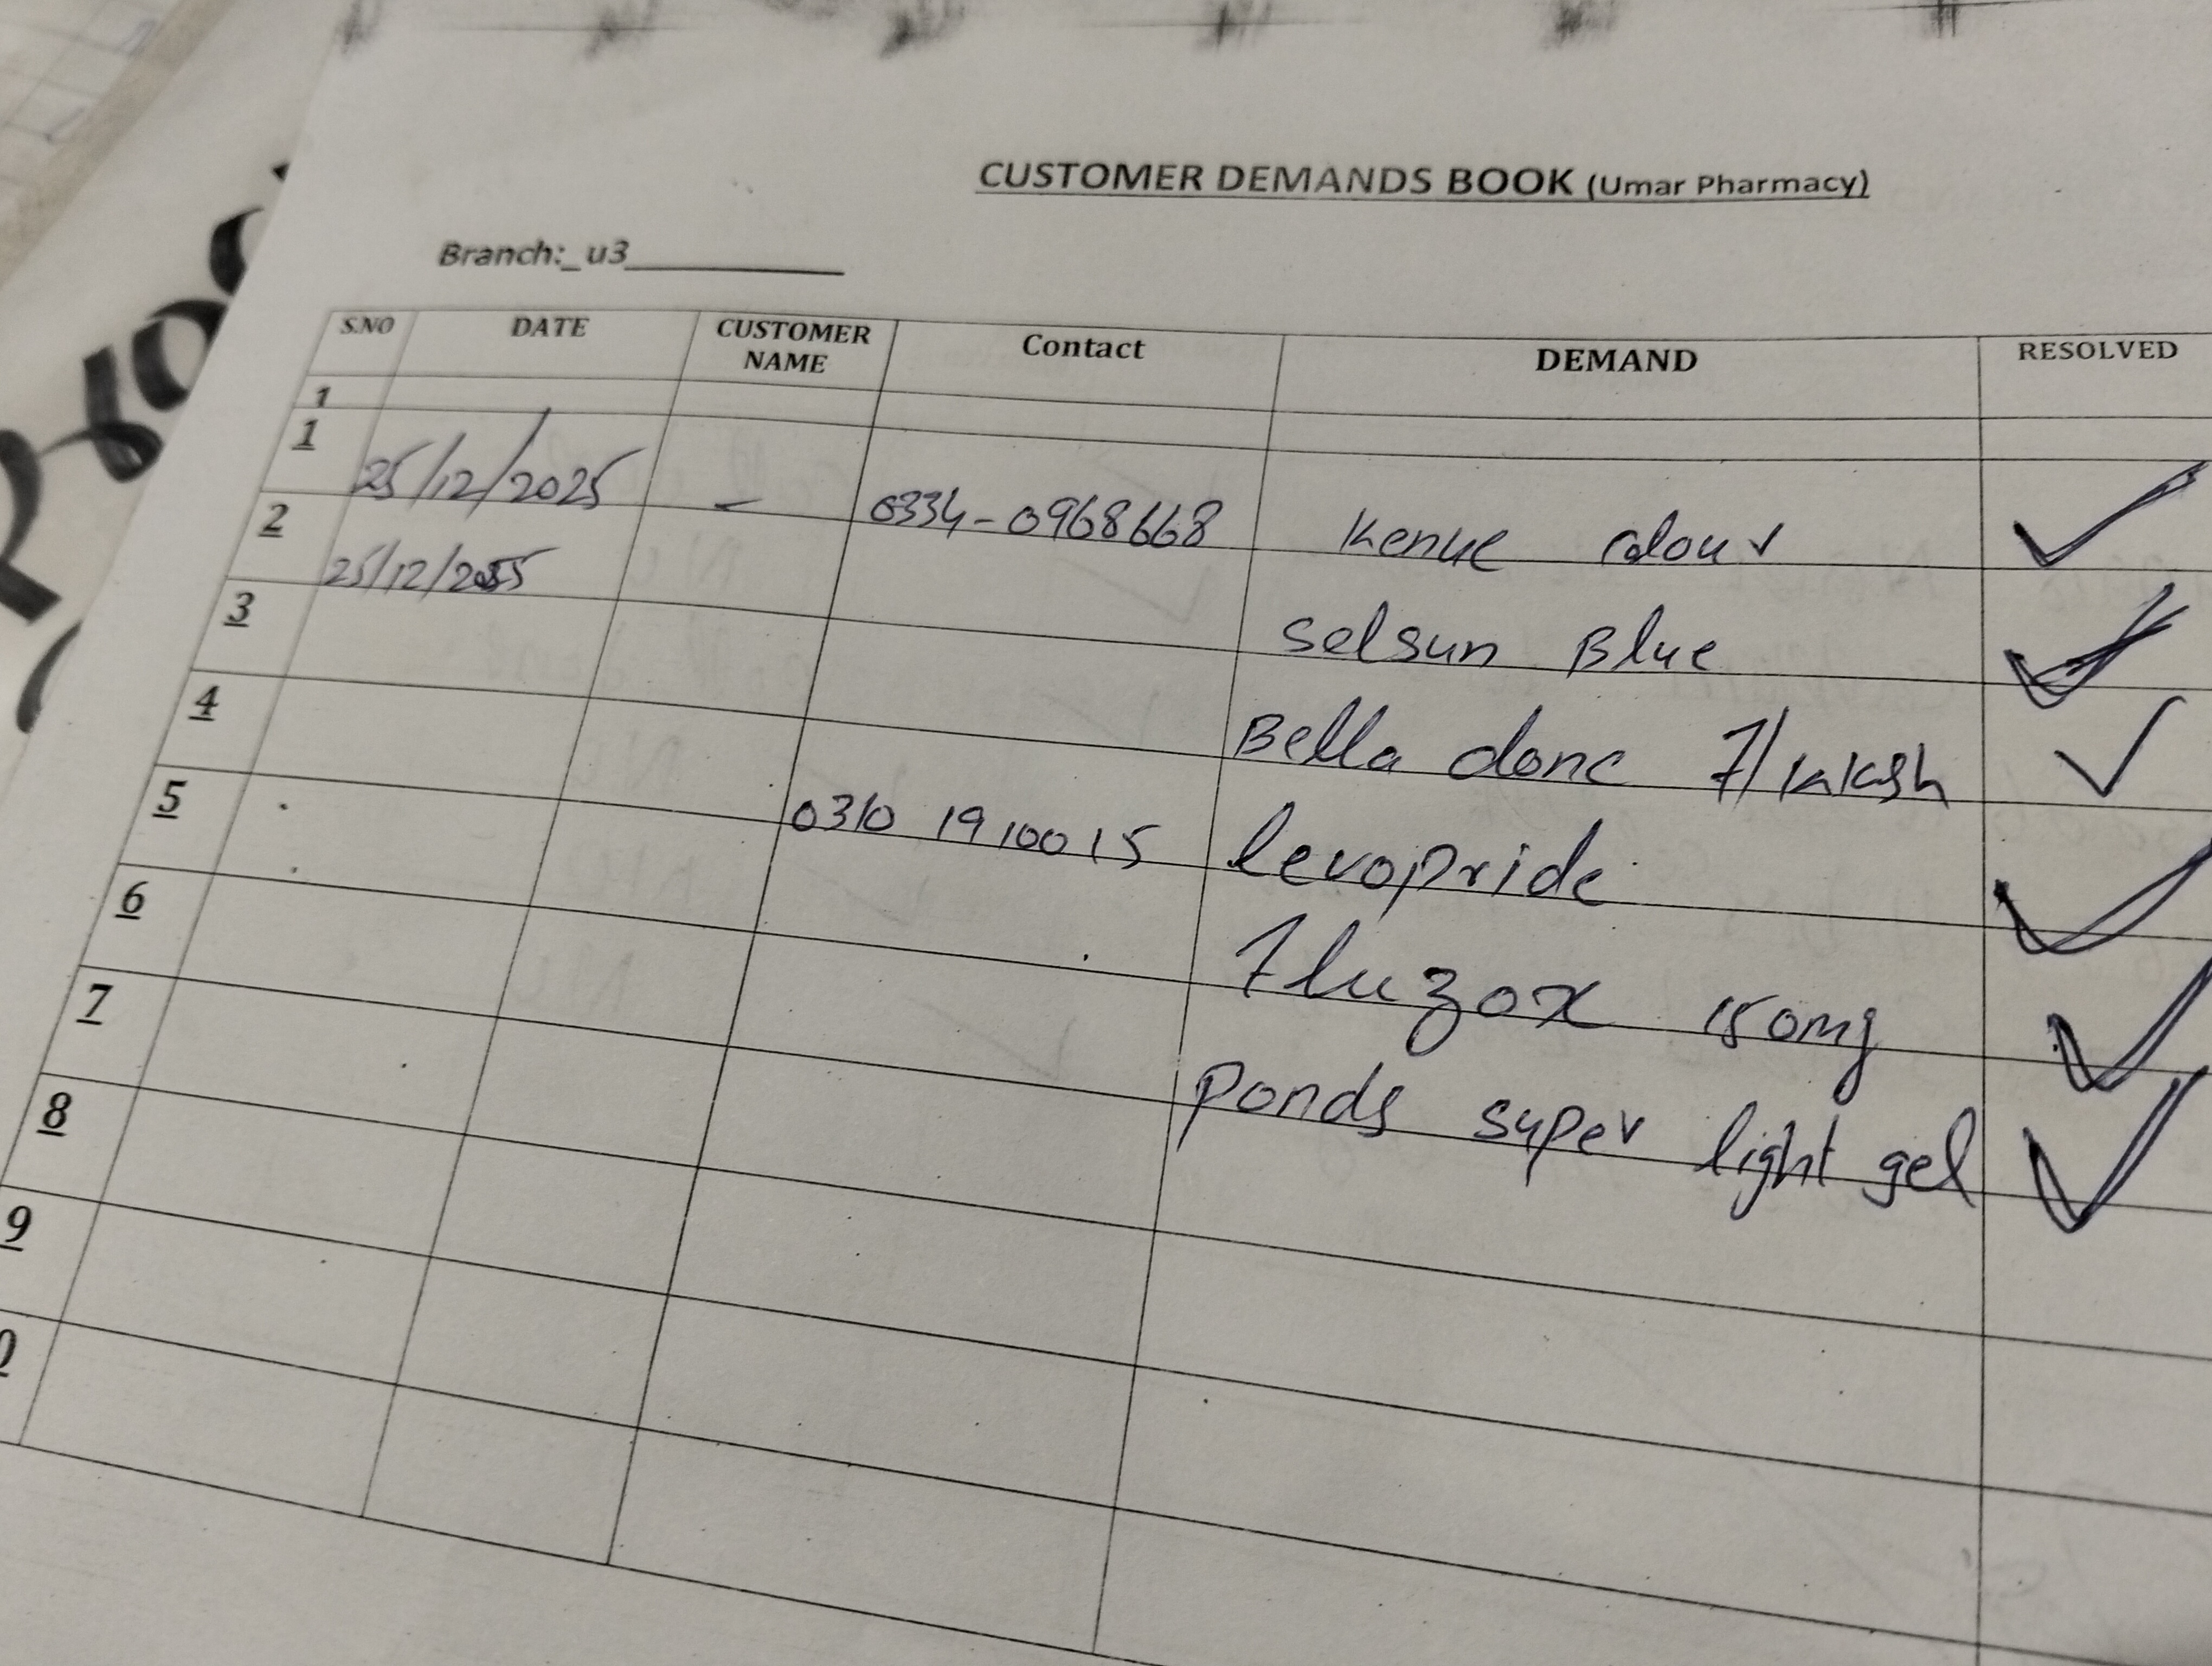 CUSTOMER DEMANDS BOOK (Umar Pharmacy)
Branch:_u3
S.NO DATE CUSTOMER NAME Contact DEMAND RESOLVED
1
1 25/12/2025 – 0334-0968668 Kenue colour ✓
2 25/12/2025 Selsun Blue ✓
3 Bella done ✓
4 0310 1910015 levopride ✓
5 Fluzox 150mg ✓
6 Ponds super light gel ✓
7
8
9